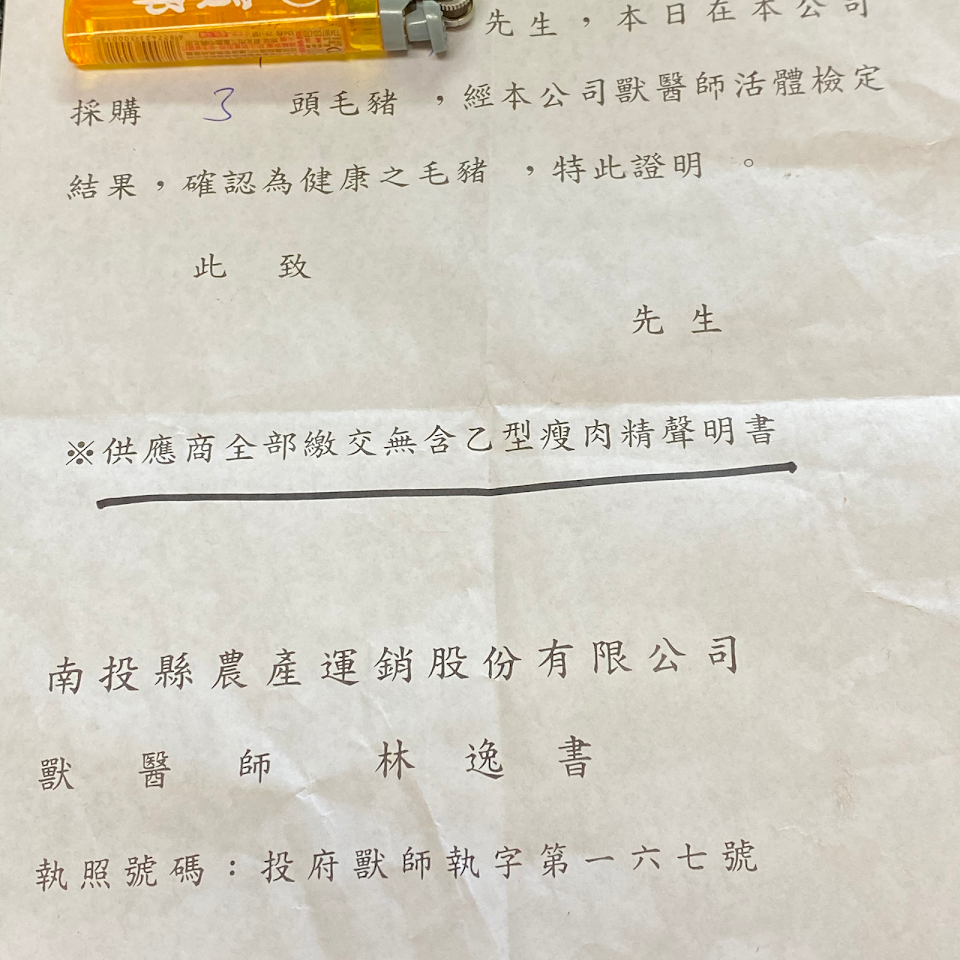 先生，本日在本公司
採購 3 頭毛豬，經本公司獸醫師活體檢定
結果，確認為健康之毛豬，特此證明。
此致
先生
※供應商全部繳交無含乙型瘦肉精聲明書
南投縣農產運銷股份有限公司
獸醫師 林逸書
執照號碼：投府獸師執字第一六七號